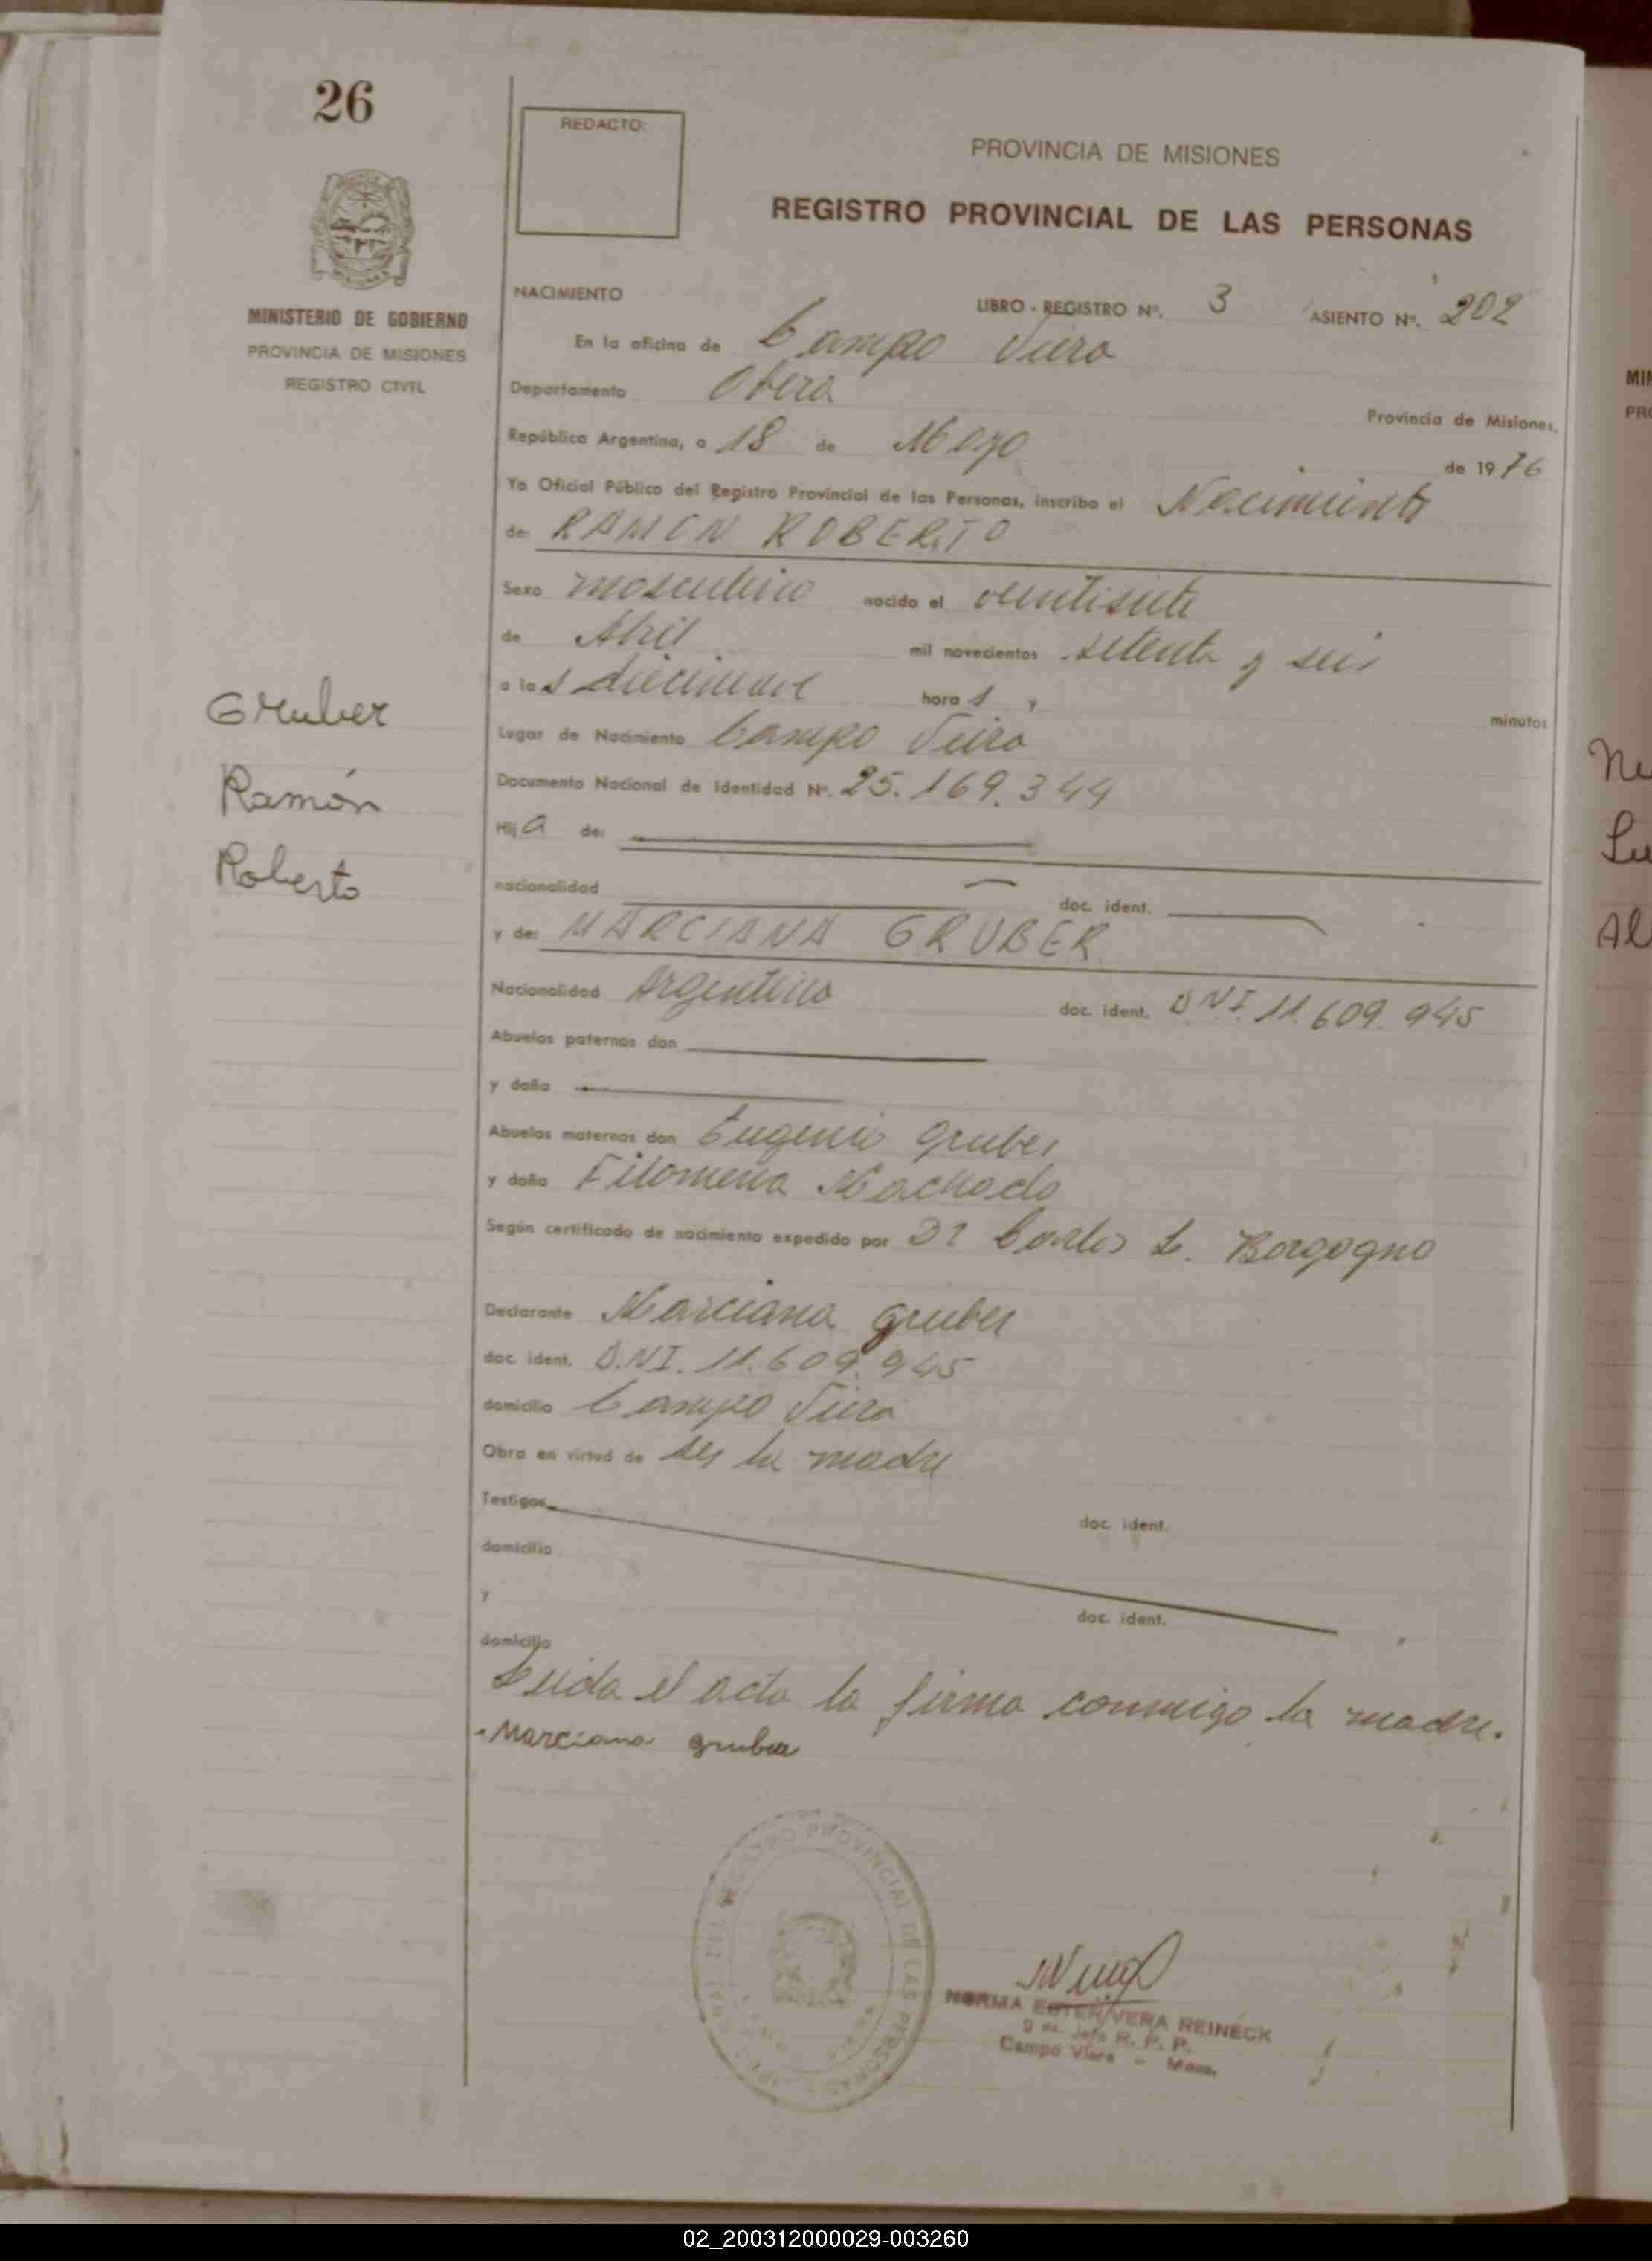 26
REDACTO:
PROVINCIA DE MISIONES
REGISTRO PROVINCIAL DE LAS PERSONAS
MINISTERIO DE GOBIERNO
PROVINCIA DE MISIONES
REGISTRO CIVIL
NACIMIENTO LIBRO - REGISTRO Nº. 3 ASIENTO Nº. 202
En la oficina de Campo Viera
Departamento Oberá Provincia de Misiones,
República Argentina, a 18 de Mayo de 1976
Yo Oficial Público del Registro Provincial de las Personas, inscribo el Nacimiento
de: RAMON ROBERTO
Sexo masculino nacido el veintisiete
de Abril mil novecientos setenta y seis
a las diecinueve horas y minutos
Lugar de Nacimiento Campo Viera
Documento Nacional de Identidad Nº. 25.169.344
Hija de:
nacionalidad doc. ident.
y de: MARCIANA GRUBER
Nacionalidad Argentina doc. ident. DNI 11.609.945
Abuelos paternos don
y doña
Abuelos maternos don Eugenio Gruber
y doña Filomena Machado
Según certificado de nacimiento expedido por Dr Carlos L. Borgogno
Declarante Marciana Gruber
doc. ident. D.NI. 11.609.945
domicilio Campo Viera
Obra en virtud de ser la madre
Testigos doc. ident.
domicilio
y doc. ident.
domicilio
Leida el acta la firma conmigo la madre.
Marciana gruber
Gruber
Ramón
Roberto
REGISTRO PROVINCIAL DE LAS PERSONAS
NORMA ESTER VERA REINECK
Jefe R. P. P.
Campo Viera - Mnes.
MIN
PRO
Al
02_200312000029-003260